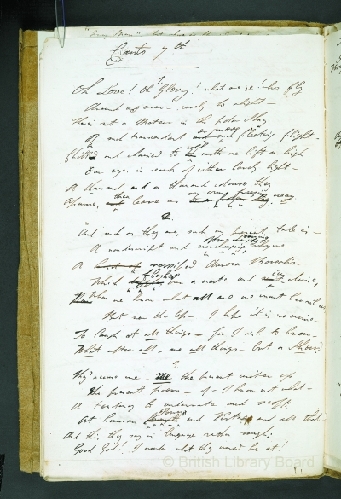 Canto 7th
Oh Love! Oh Glory! what are ye! who fly
Around us ever rarely to alight—
There's not a Meteor in the polar Sky
Of such transcendent and more fleeting flight—
Chill and chained to we lift on high
Our eyes in search of either lovely light—
A thousand and a thousand colours they
Assume, then leave us on our freezing way
2.
And such as they are, such my present tale is—
A nondescript and ever varying
A versified Aurora Borealis
Which flashes o'er a waste and icy clime,
When we know what all are we must bewail us
But ne'er the less I hope it is no crime
To laugh at all things—for I wish to know
What after all are all things—but a Show?
They accuse me—me—the present writer of
The present poem—of—I know not what—
A tendency to underrate and scoff
At human power and Virtue and all that
And this they say in language rather rough.
Good God! I wonder what they would be at!
© British Library Board